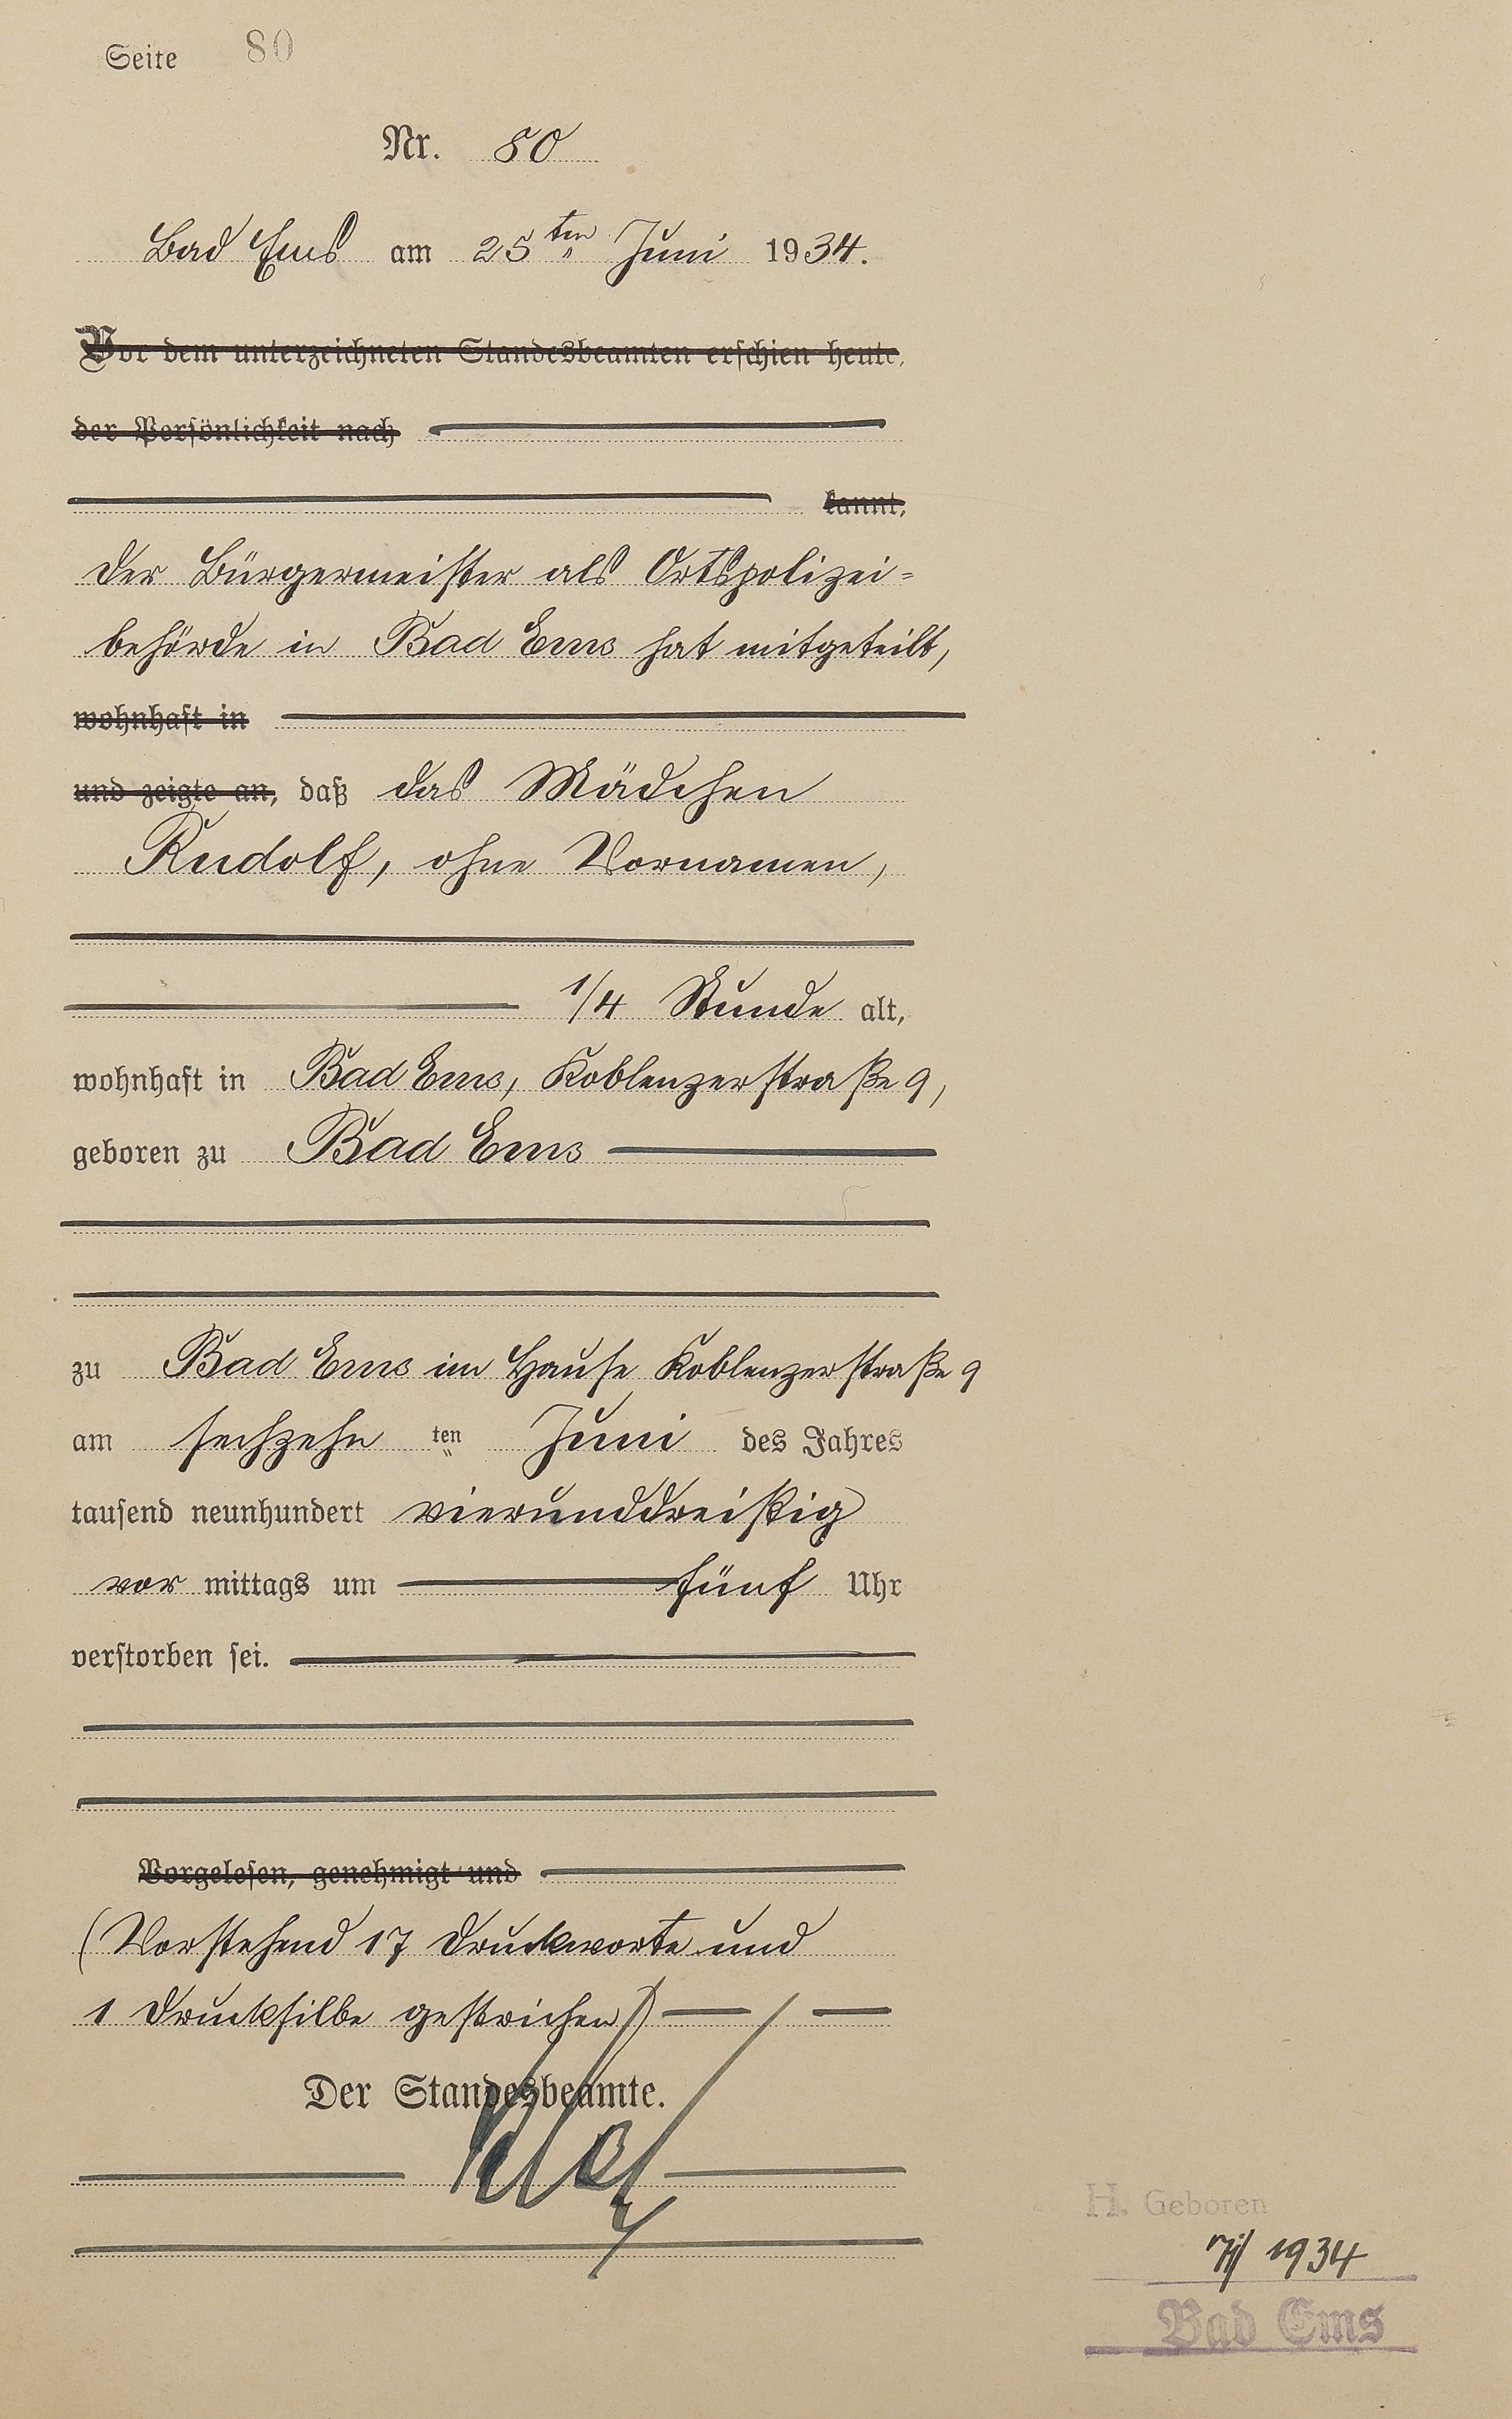 Seite 80
Nr. 80
Bad Ems am 25ten Juni 1934.
Vor dem unterzeichneten Standesbeamten erschien heute,
der Persönlichkeit nach
kannt,
Der Bürgermeister als Ortspolizei=
behörde in Bad Ems hat mitgeteilt,
wohnhaft in
und zeigte an, daß das Mädchen
Rudolf, ohne Vornamen,
1/4 Stunde alt,
wohnhaft in Bad Ems, Koblenzerstraße 9,
geboren zu Bad Ems
zu Bad Ems im Hause Koblenzerstraße 9
am sechzehn ten Juni des Jahres
tausend neunhundert vierunddreißig
vor mittags um fünf Uhr
verstorben sei.
Vorgelesen, genehmigt und
(Vorstehend 17 Druckworte und
1 Drucksilbe gestrichen)
Der Standesbeamte.
H. Geboren
1934
Bad Ems